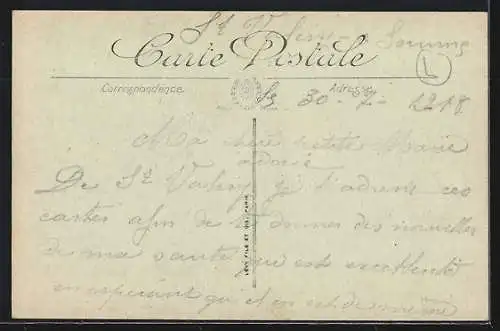 St Valery s Somme
Carte Postale
L
Correspondance
Adresse
le 30-7-1918
Ma chère petite Marie
adorée
De St Valery je t'adresse ces
cartes afin de te donner des nouvelles
de ma santé qui est excellente
en espérant qu'il en est de même
LÉVY FILS ET CIE, PARIS